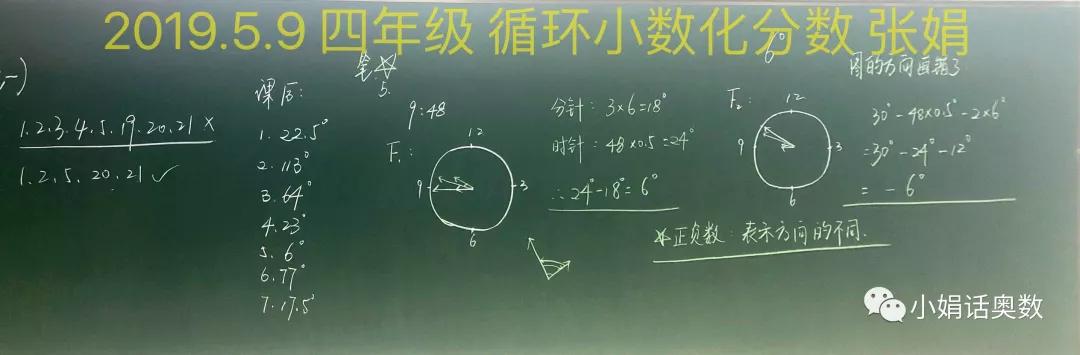 2019.5.9 四年级 循环小数化分数 张娟
(一)
1.2.3.4.5.19.20.21 ×
1.2.5.20.21 ✓
课后:
1. 22.5°
2. 113°
3. 64°
4. 23°
5. 6°
6. 77°
7. 17.5°
笔☆
5.
9:48
F₁:
12
9
3
6
分针: 3×6=18°
时针: 48×0.5=24°
∴ 24°-18°= 6°
6°
图的方向画错了
F₂:
12
9
3
6
30°-48×0.5°-2×6°
=30°-24°-12°
= -6°
☆正负数: 表示方向的不同.
小娟话奥数